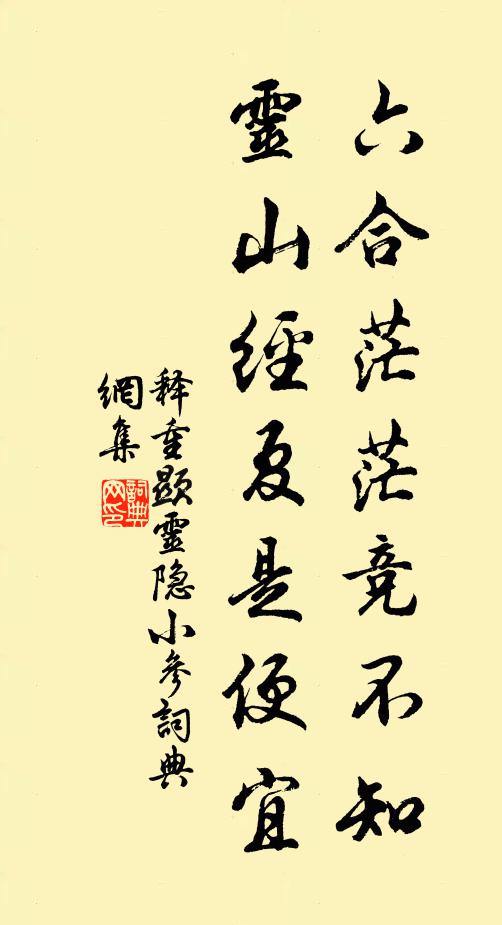 六合茫茫竞不知
靈山經夏是便宜
释重顯靈隐小參詞典
網集
詞典網印